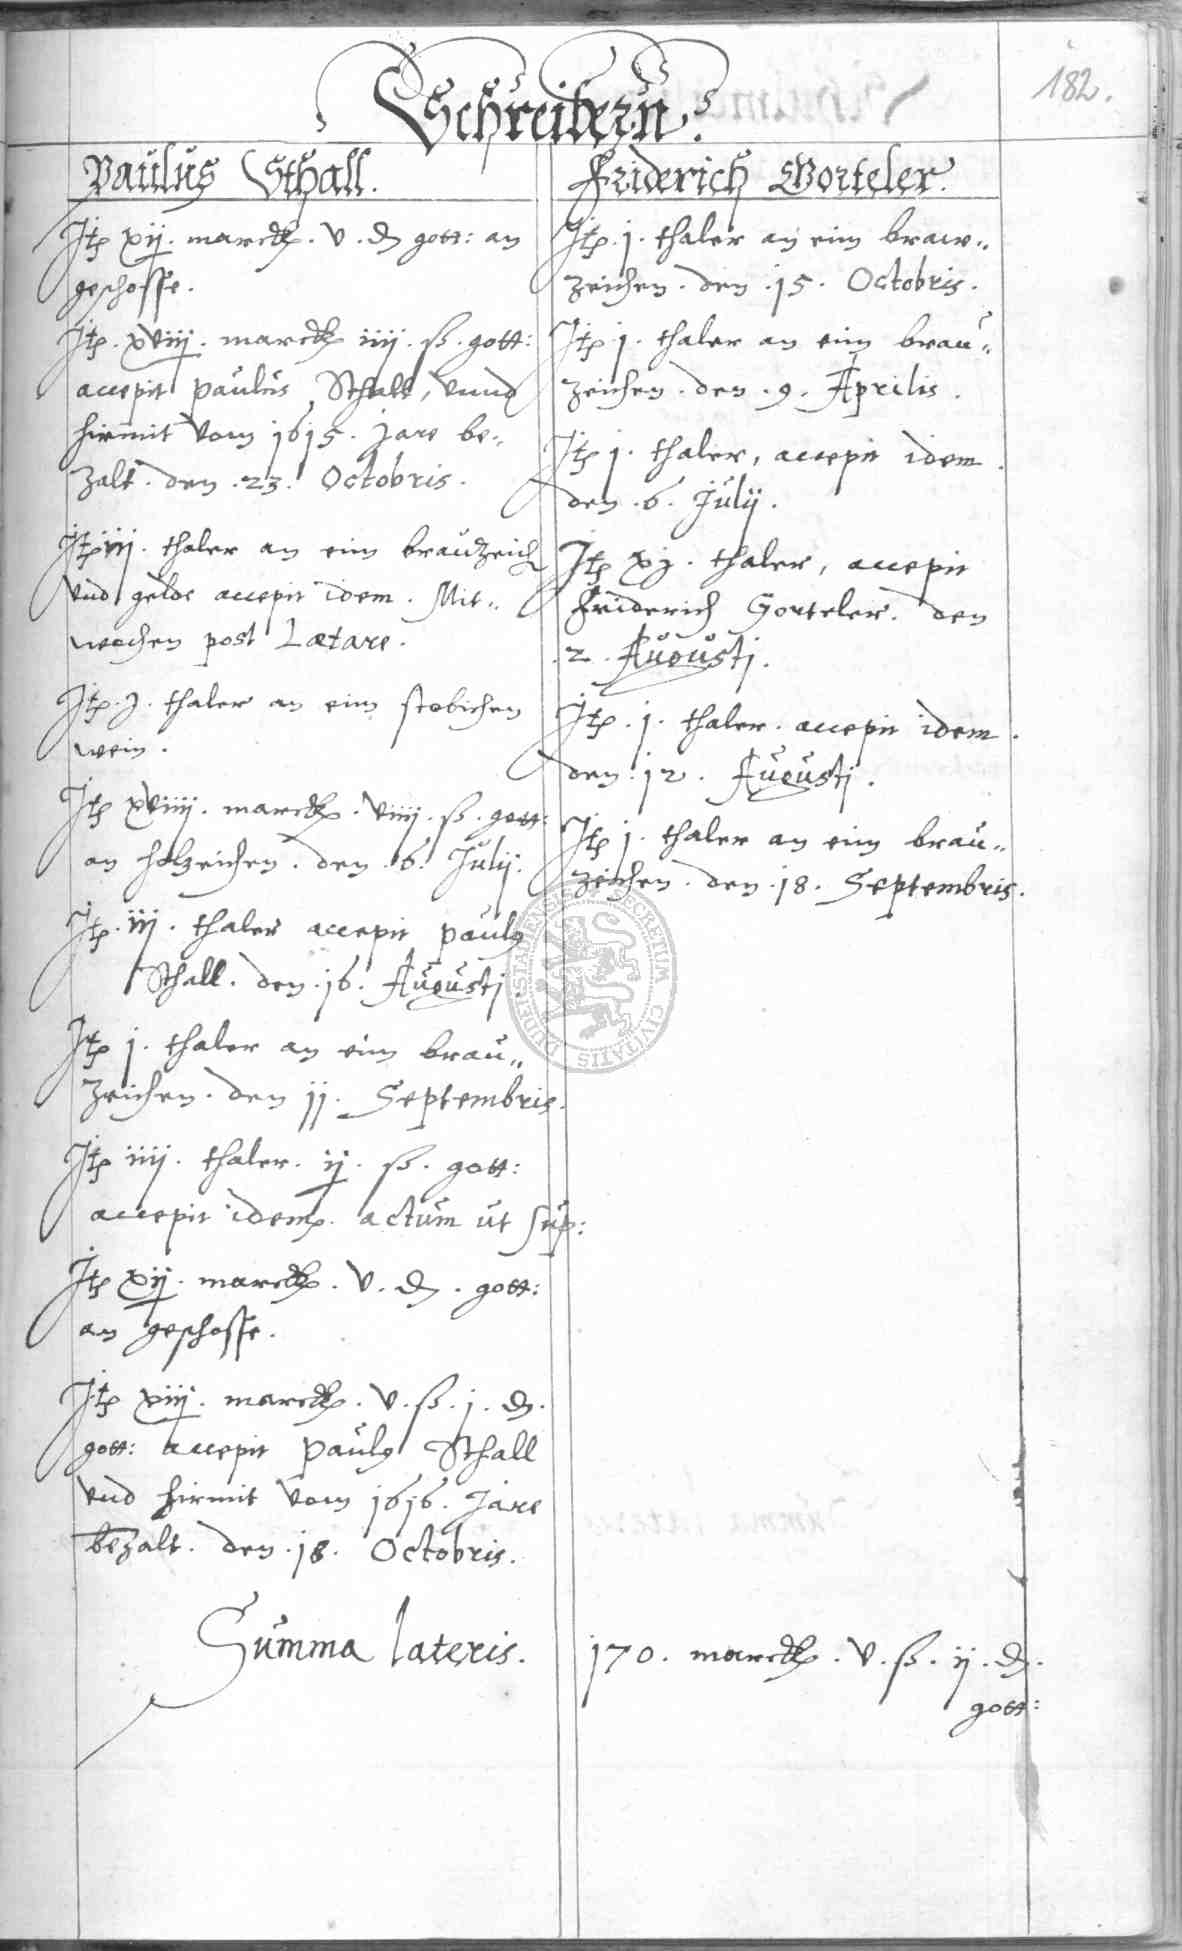 182.
Schreibern.
Paulus Sthall.
Jtē xij. marck. v. ₰ gott: an
geschosse.
Jtē. xviij. marck iiij. ß. gott:
accepit Paulus Sthall, vnnd
hirmit vom 1615. Jare be„
zalt. den .23. Octobris.
Jtē iij. thaler an eim brauzeich
vnd gelde accepit idem. Mit„
wochen post Lætare.
Jtē. j. thaler an eim stobichen
wein.
Jtē xviiij. marck. viiij. ß. gott:
an holzeichen. den .6. Julij.
Jtē. iij. thaler accepit Paulꝯ
Sthall. den .16. Augusti.
Jtē j. thaler an eim brau„
zeichen. den 11. Septembris.
Jtē iiij. thaler. ij. ß. gott:
accepit idem. actum ut sup:
Jtē xij. marck. v. ₰. gott:
an geschosse.
Jtē xiij. marck. v. ß. j. ₰.
gott: accepit Paulꝯ Sthall
vnd hirmit vom 1616. Jare
bezalt. den .18. Octobris.
Friderich Gorteler.
Jtē. j. thaler an eim braw„
zeichen. den .15. Octobris.
Jtē. j. thaler an eim brau„
zeichen. den .9. Aprilis.
Jtē j. thaler, accepit idem.
den .6. Julij.
Jtē xj. thaler, accepit
Friderich Gorteler. den
.2. Augusti.
Jtē. j. thaler. accepit idem.
den .12. Augusti.
Jtē j. thaler an eim brau„
zeichen. den .18. Septembris.
SECRETUM CIVITATIS
Summa lateris. 170. marck. v. ß. ij. ₰.
gott: